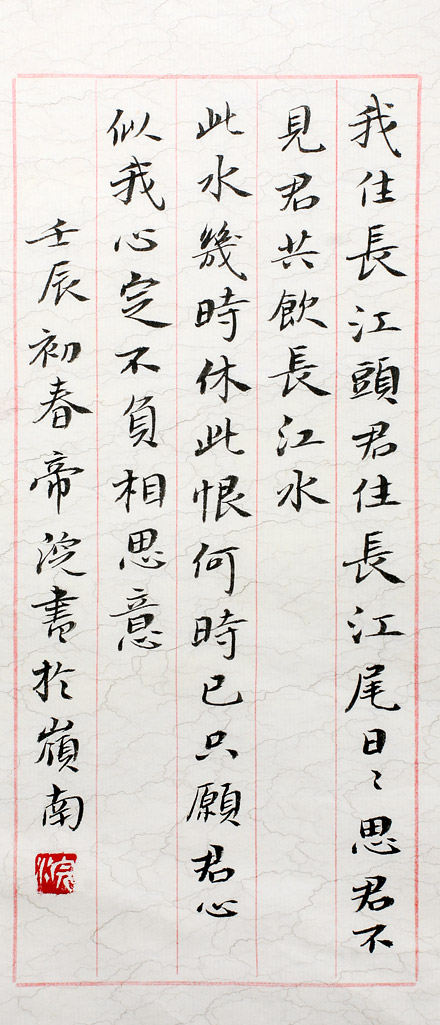 我住長江頭君住長江尾日〻思君不
見君共飲長江水
此水幾時休此恨何時已只願君心
似我心定不負相思意
壬辰初春帝浣書於嶺南